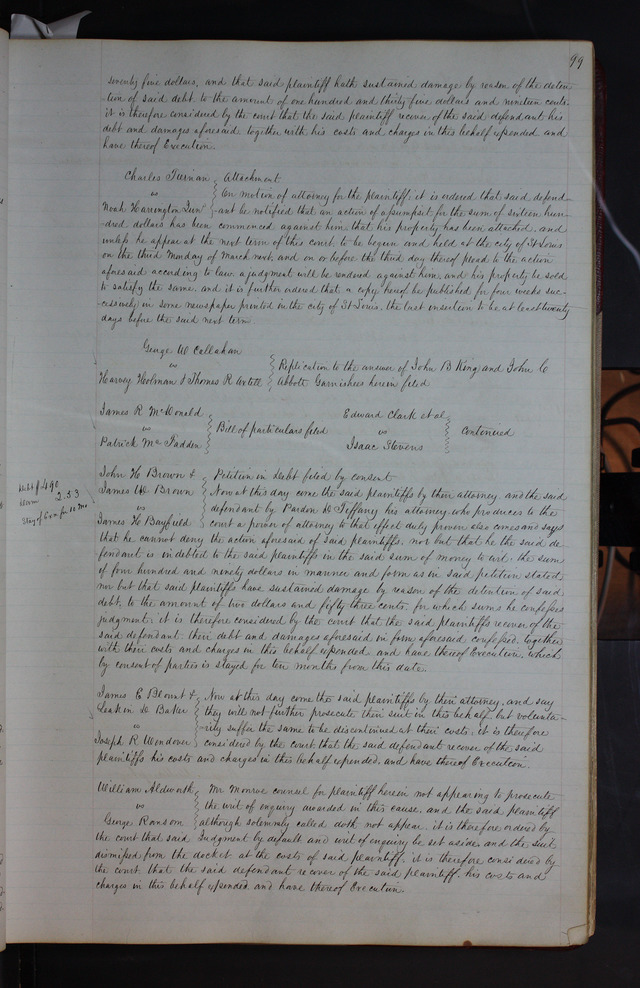 99
seventy five dollars, and that said plaintiff hath sustained damage by reason of the deten-
tion of said debt to the amount of one hundred and thirty five dollars and nineteen cents.
it is therefore considered by the court that the said plaintiff recover of the said defendant his
debt and damages aforesaid together with his costs and charges in this behalf expended and
have thereof Execution.
Charles Tiernan Attachment
vs On motion of attorney for the plaintiff, it is ordered that said defend-
Noah Harrington Junr ant be notified that an action of assumpsit for the sum of sixteen hun-
dred dollars has been commenced against him, that his property has been attached, and
unless he appear at the next term of this court, to be begun and held at the city of St Louis
on the third Monday of March next, and on or before the third day thereof plead to the action
aforesaid according to law a judgment will be rendered against him, and his property be sold
to satisfy the same, and it is further ordered that a copy hereof be published for four weeks suc-
cessively in some newspaper printed in the city of St Louis, the last insertion to be at least twenty
days before the said next term
George W Callahan
vs Replication to the answer of John B King and John C
Harvey Holman & Thomas R Abbott Garnishees herein filed
James R McDonald Edward Clark et al
vs Bill of particulars filed vs Continued
Patrick Mc Fadden Isaac Stevens
John H Brown & Petition in Debt filed by consent
James W Brown Now at this day come the said plaintiffs by their attorney and the said
vs defendant by Pardon D Tiffany his attorney who produces to the
James H Bayfield court a power of attorney to that effect duly proven also comes and says
that he cannot deny the action aforesaid of said plaintiffs, nor but that he the said de-
fendant is indebted to the said plaintiffs in the said sum of money to wit, the sum
of four hundred and ninety dollars in manner and form as in said petition stated,
nor but that said plaintiffs have sustained damage by reason of the detention of said
debt, to the amount of two dollars and fifty three cents, for which sums he confesses
judgment, it is therefore considered by the court that the said plaintiffs recover of the
said defendant their debt and damages aforesaid in form aforesaid confessed, together
with their costs and charges in this behalf expended and have thereof Execution, which
by consent of parties is stayed for ten months from this date.
Debt $490
Dam 2.53
Stay of Exn for 10 Mo
James E Blount & Now at this day come the said plaintiffs by their attorney, and say
Leakin D Baker they will not further prosecute their suit in this behalf but volunta-
vs rily suffer the same to be discontinued at their costs, it is therefore
Joseph R Wendover considered by the court that the said defendant recover of the said
plaintiffs his costs and charges in this behalf expended, and have thereof Execution.
William Aldworth Mr Monroe counsel for plaintiff herein not appearing to prosecute
vs the writ of enquiry awarded in this cause, and the said plaintiff
George Ransom although solemnly called doth not appear, it is therefore ordered by
the court that said Judgment by default and writ of enquiry be set aside and the suit
dismissed from the docket at the costs of said plaintiff, it is therefore considered by
the court that the said defendant recover of the said plaintiff, his costs and
charges in this behalf expended, and have thereof Execution.